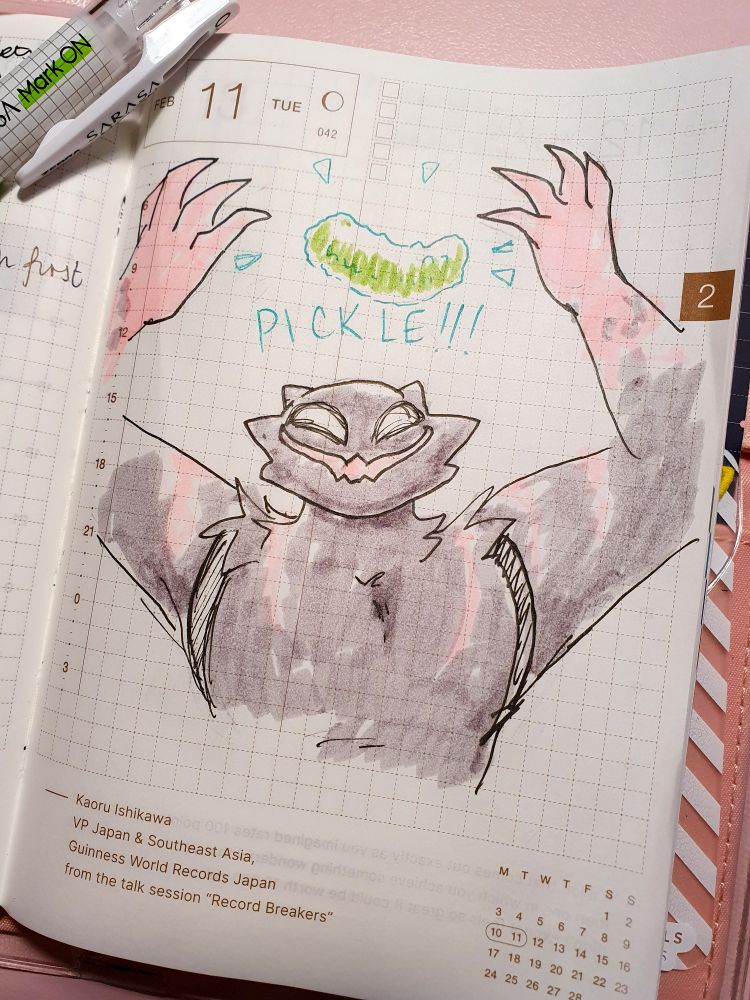 Mark ON
SARASA
FEB
11
TUE
042
first
PICKLE!!!
2
9
12
15
18
21
0
3
Kaoru Ishikawa
VP Japan & Southeast Asia,
Guinness World Records Japan
from the talk session "Record Breakers"
M T W T F S S
1 2
3 4 5 6 7 8 9
10 11 12 13 14 15 16
17 18 19 20 21 22 23
24 25 26 27 28